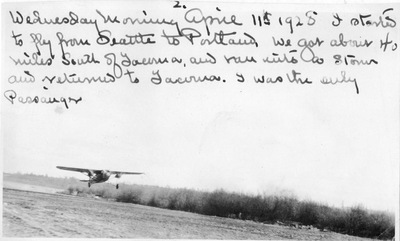 2.
Wednesday Morning April 11th 1928 I started
to fly from Seattle to Portland, We got about 40
miles South of Tacoma, and ran into a Storm
and returned to Tacoma. I was the only
Passanger